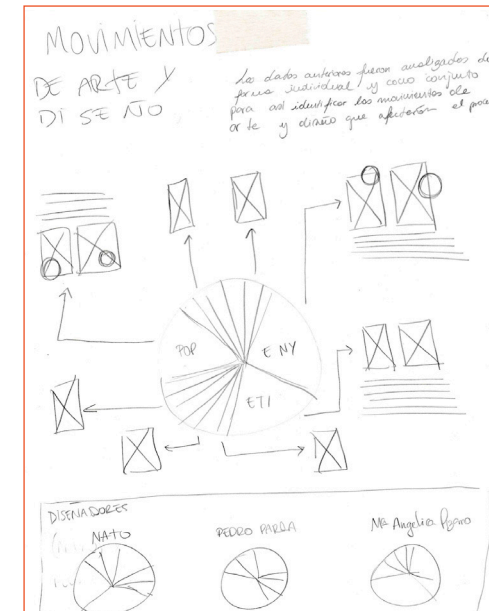 MOVIMIENTOS
DE ARTE Y
DISEÑO
Los datos anteriores fueron analizados de
forma individual y como conjunto
para así identificar los movimientos de
arte y diseño que afectaron el proce
POP
E NY
ETI
DISEÑADORES
NATO
PEDRO PARRA
Mª Angélica